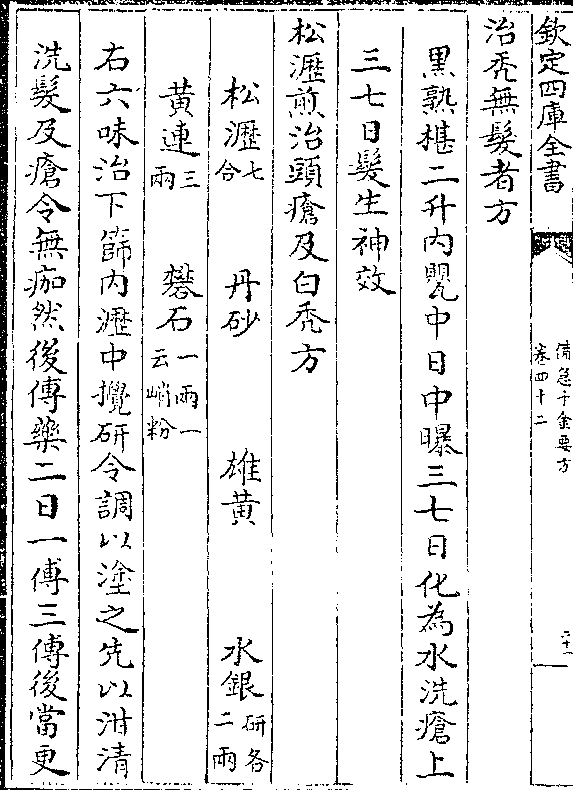 欽定四庫全書
備急千金要方
卷四十二
二十一
治禿無髮者方
黑熟椹二升内甖中日中曝三七日化為水洗瘡上
三七日髮生神效
松瀝煎治頭瘡及白禿方
松瀝七合 丹砂 雄黃 水銀研各二兩
黃連三兩 礬石一兩一云峭粉
右六味治下篩内瀝中攪研令調以塗之先以泔清
洗髮及瘡令無痂然後傅藥二日一傅三傅後當更